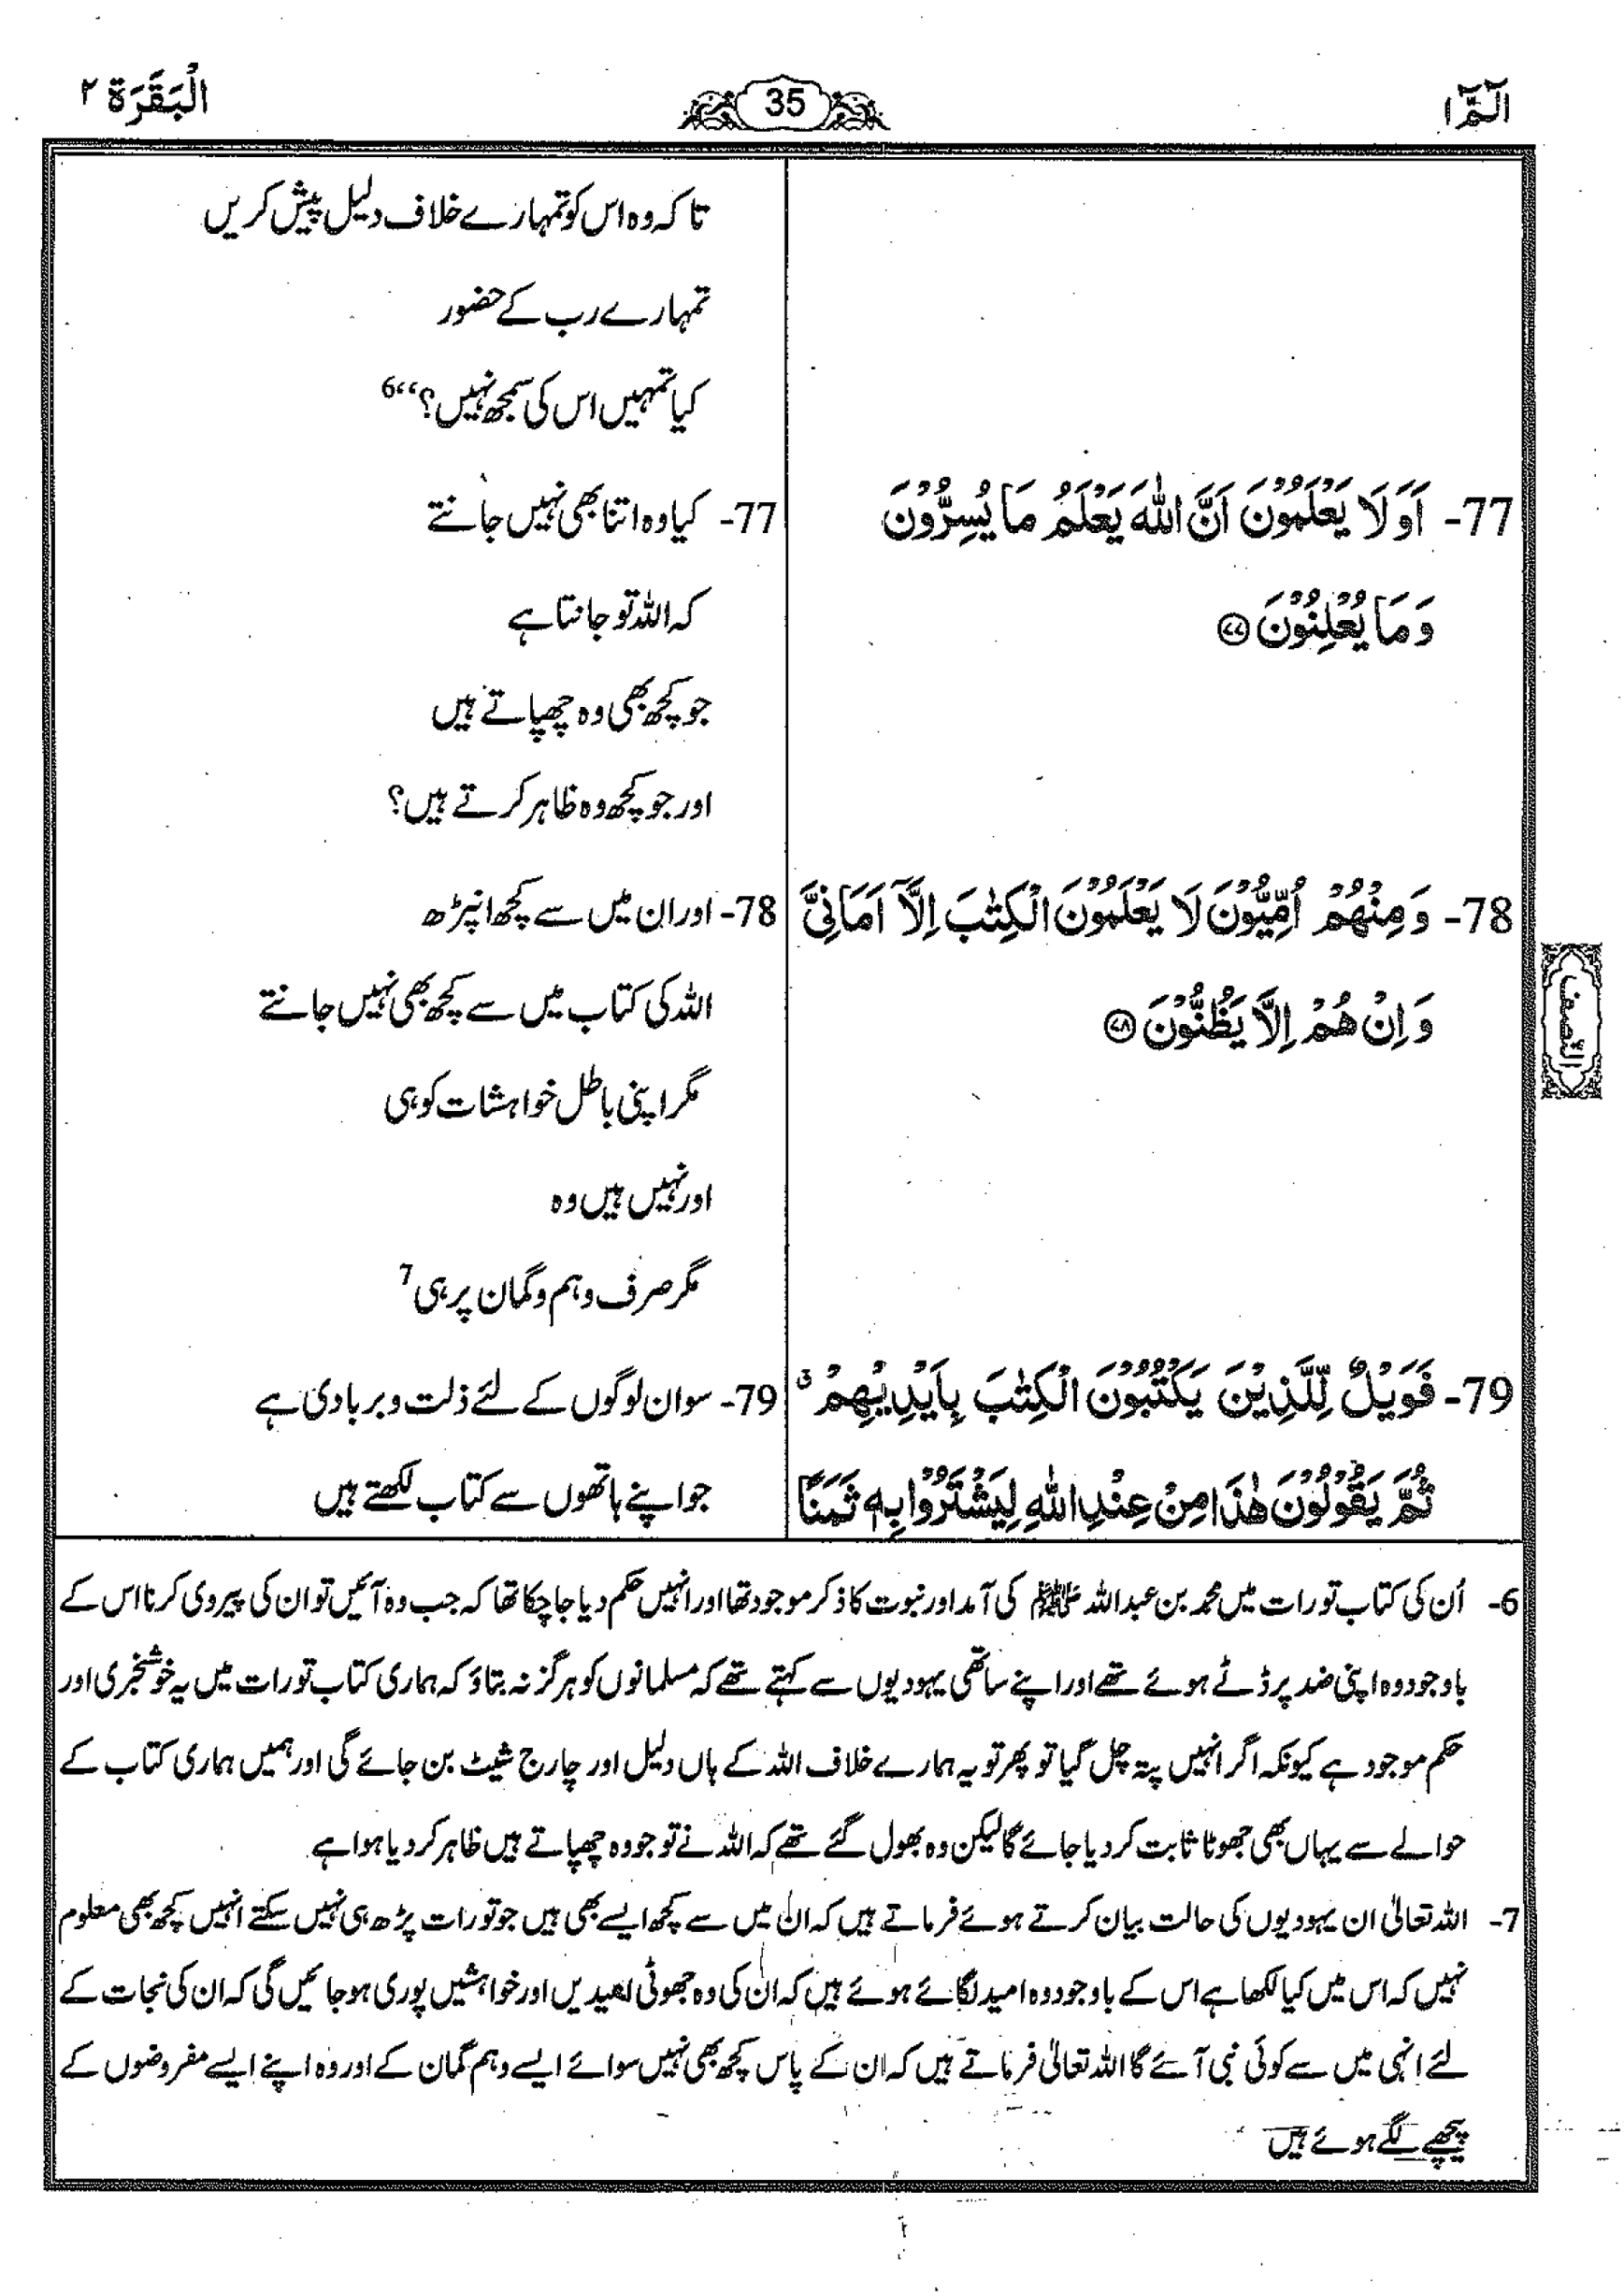 الٓمّٓ ۱
35
الْبَقَرَة ۲
تاکہ وہ اس کو تمہارے خلاف دلیل پیش کریں
تمہارے رب کے حضور
کیا تمہیں اس کی سمجھ نہیں؟‘‘6
77- اَوَلَا يَعْلَمُوْنَ اَنَّ اللّٰهَ يَعْلَمُ مَا يُسِرُّوْنَ
وَمَا يُعْلِنُوْنَ ۷۷
77- کیا وہ اتنا بھی نہیں جانتے
کہ اللہ تو جانتا ہے
جو کچھ بھی وہ چھپاتے ہیں
اور جو کچھ وہ ظاہر کرتے ہیں؟
78- وَمِنْهُمْ اُمِّيُّوْنَ لَا يَعْلَمُوْنَ الْكِتٰبَ اِلَّآ اَمَانِيَّ
وَاِنْ هُمْ اِلَّا يَظُنُّوْنَ ۷۸
78- اور ان میں سے کچھ انپڑھ
اللہ کی کتاب میں سے کچھ بھی نہیں جانتے
مگر اپنی باطل خواہشات کو ہی
اور نہیں ہیں وہ
مگر صرف وہم و گمان پر ہی7
79- فَوَيْلٌ لِّلَّذِيْنَ يَكْتُبُوْنَ الْكِتٰبَ بِاَيْدِيْهِمْ ۤ
ثُمَّ يَقُوْلُوْنَ هٰذَا مِنْ عِنْدِ اللّٰهِ لِيَشْتَرُوْا بِهٖ ثَمَنًا
79- سو ان لوگوں کے لئے ذلت و بربادی ہے
جو اپنے ہاتھوں سے کتاب لکھتے ہیں
النصف
6- اُن کی کتاب تورات میں محمد بن عبداللہ ﷺ کی آمد اور نبوت کا ذکر موجود تھا اور انہیں حکم دیا جا چکا تھا کہ جب وہ آئیں تو ان کی پیروی کرنا اس کے
باوجود وہ اپنی ضد پر ڈٹے ہوئے تھے اور اپنے ساتھی یہودیوں سے کہتے تھے کہ مسلمانوں کو ہرگز نہ بتاؤ کہ ہماری کتاب تورات میں یہ خوشخبری اور
حکم موجود ہے کیونکہ اگر انہیں پتہ چل گیا تو پھر تو یہ ہمارے خلاف اللہ کے ہاں دلیل اور چارج شیٹ بن جائے گی اور ہمیں ہماری کتاب کے
حوالے سے یہاں بھی جھوٹا ثابت کر دیا جائے گا لیکن وہ بھول گئے تھے کہ اللہ نے تو جو وہ چھپاتے ہیں ظاہر کر دیا ہوا ہے
7- اللہ تعالیٰ ان یہودیوں کی حالت بیان کرتے ہوئے فرماتے ہیں کہ ان میں سے کچھ ایسے بھی ہیں جو تورات پڑھ ہی نہیں سکتے انہیں کچھ بھی معلوم
نہیں کہ اس میں کیا لکھا ہے اس کے باوجود وہ امید لگائے ہوئے ہیں کہ ان کی وہ جھوٹی امیدیں اور خواہشیں پوری ہو جائیں گی کہ ان کی نجات کے
لئے انہی میں سے کوئی نبی آئے گا اللہ تعالیٰ فرماتے ہیں کہ ان کے پاس کچھ بھی نہیں سوائے ایسے وہم گمان کے اور وہ اپنے ایسے مفروضوں کے
پیچھے لگے ہوئے ہیں